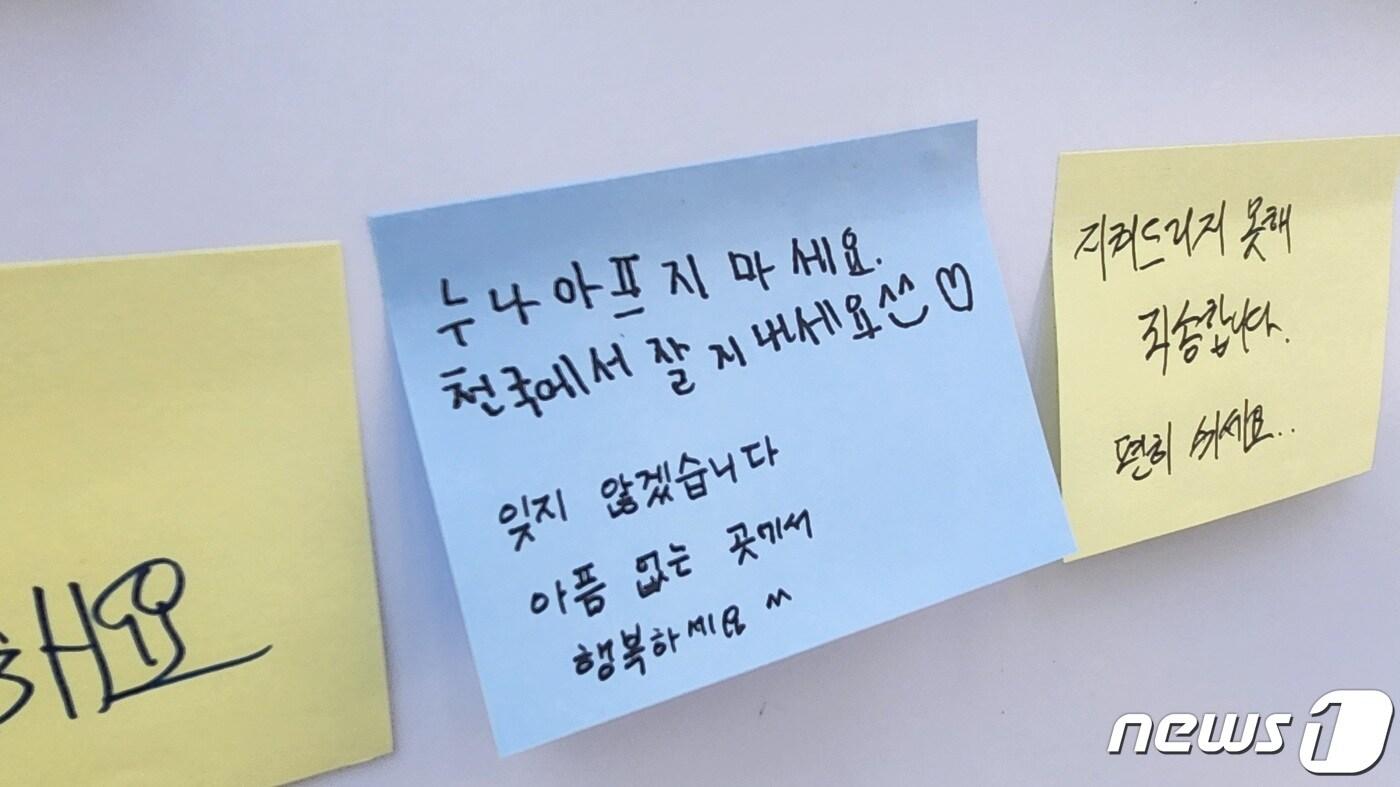 해요
누나 아프지 마세요.
천국에서 잘 지내세요^^ ♡
잊지 않겠습니다
아픔 없는 곳에서
행복하세요 ^^
지켜드리지 못해
죄송합니다.
편히 쉬세요..
news1